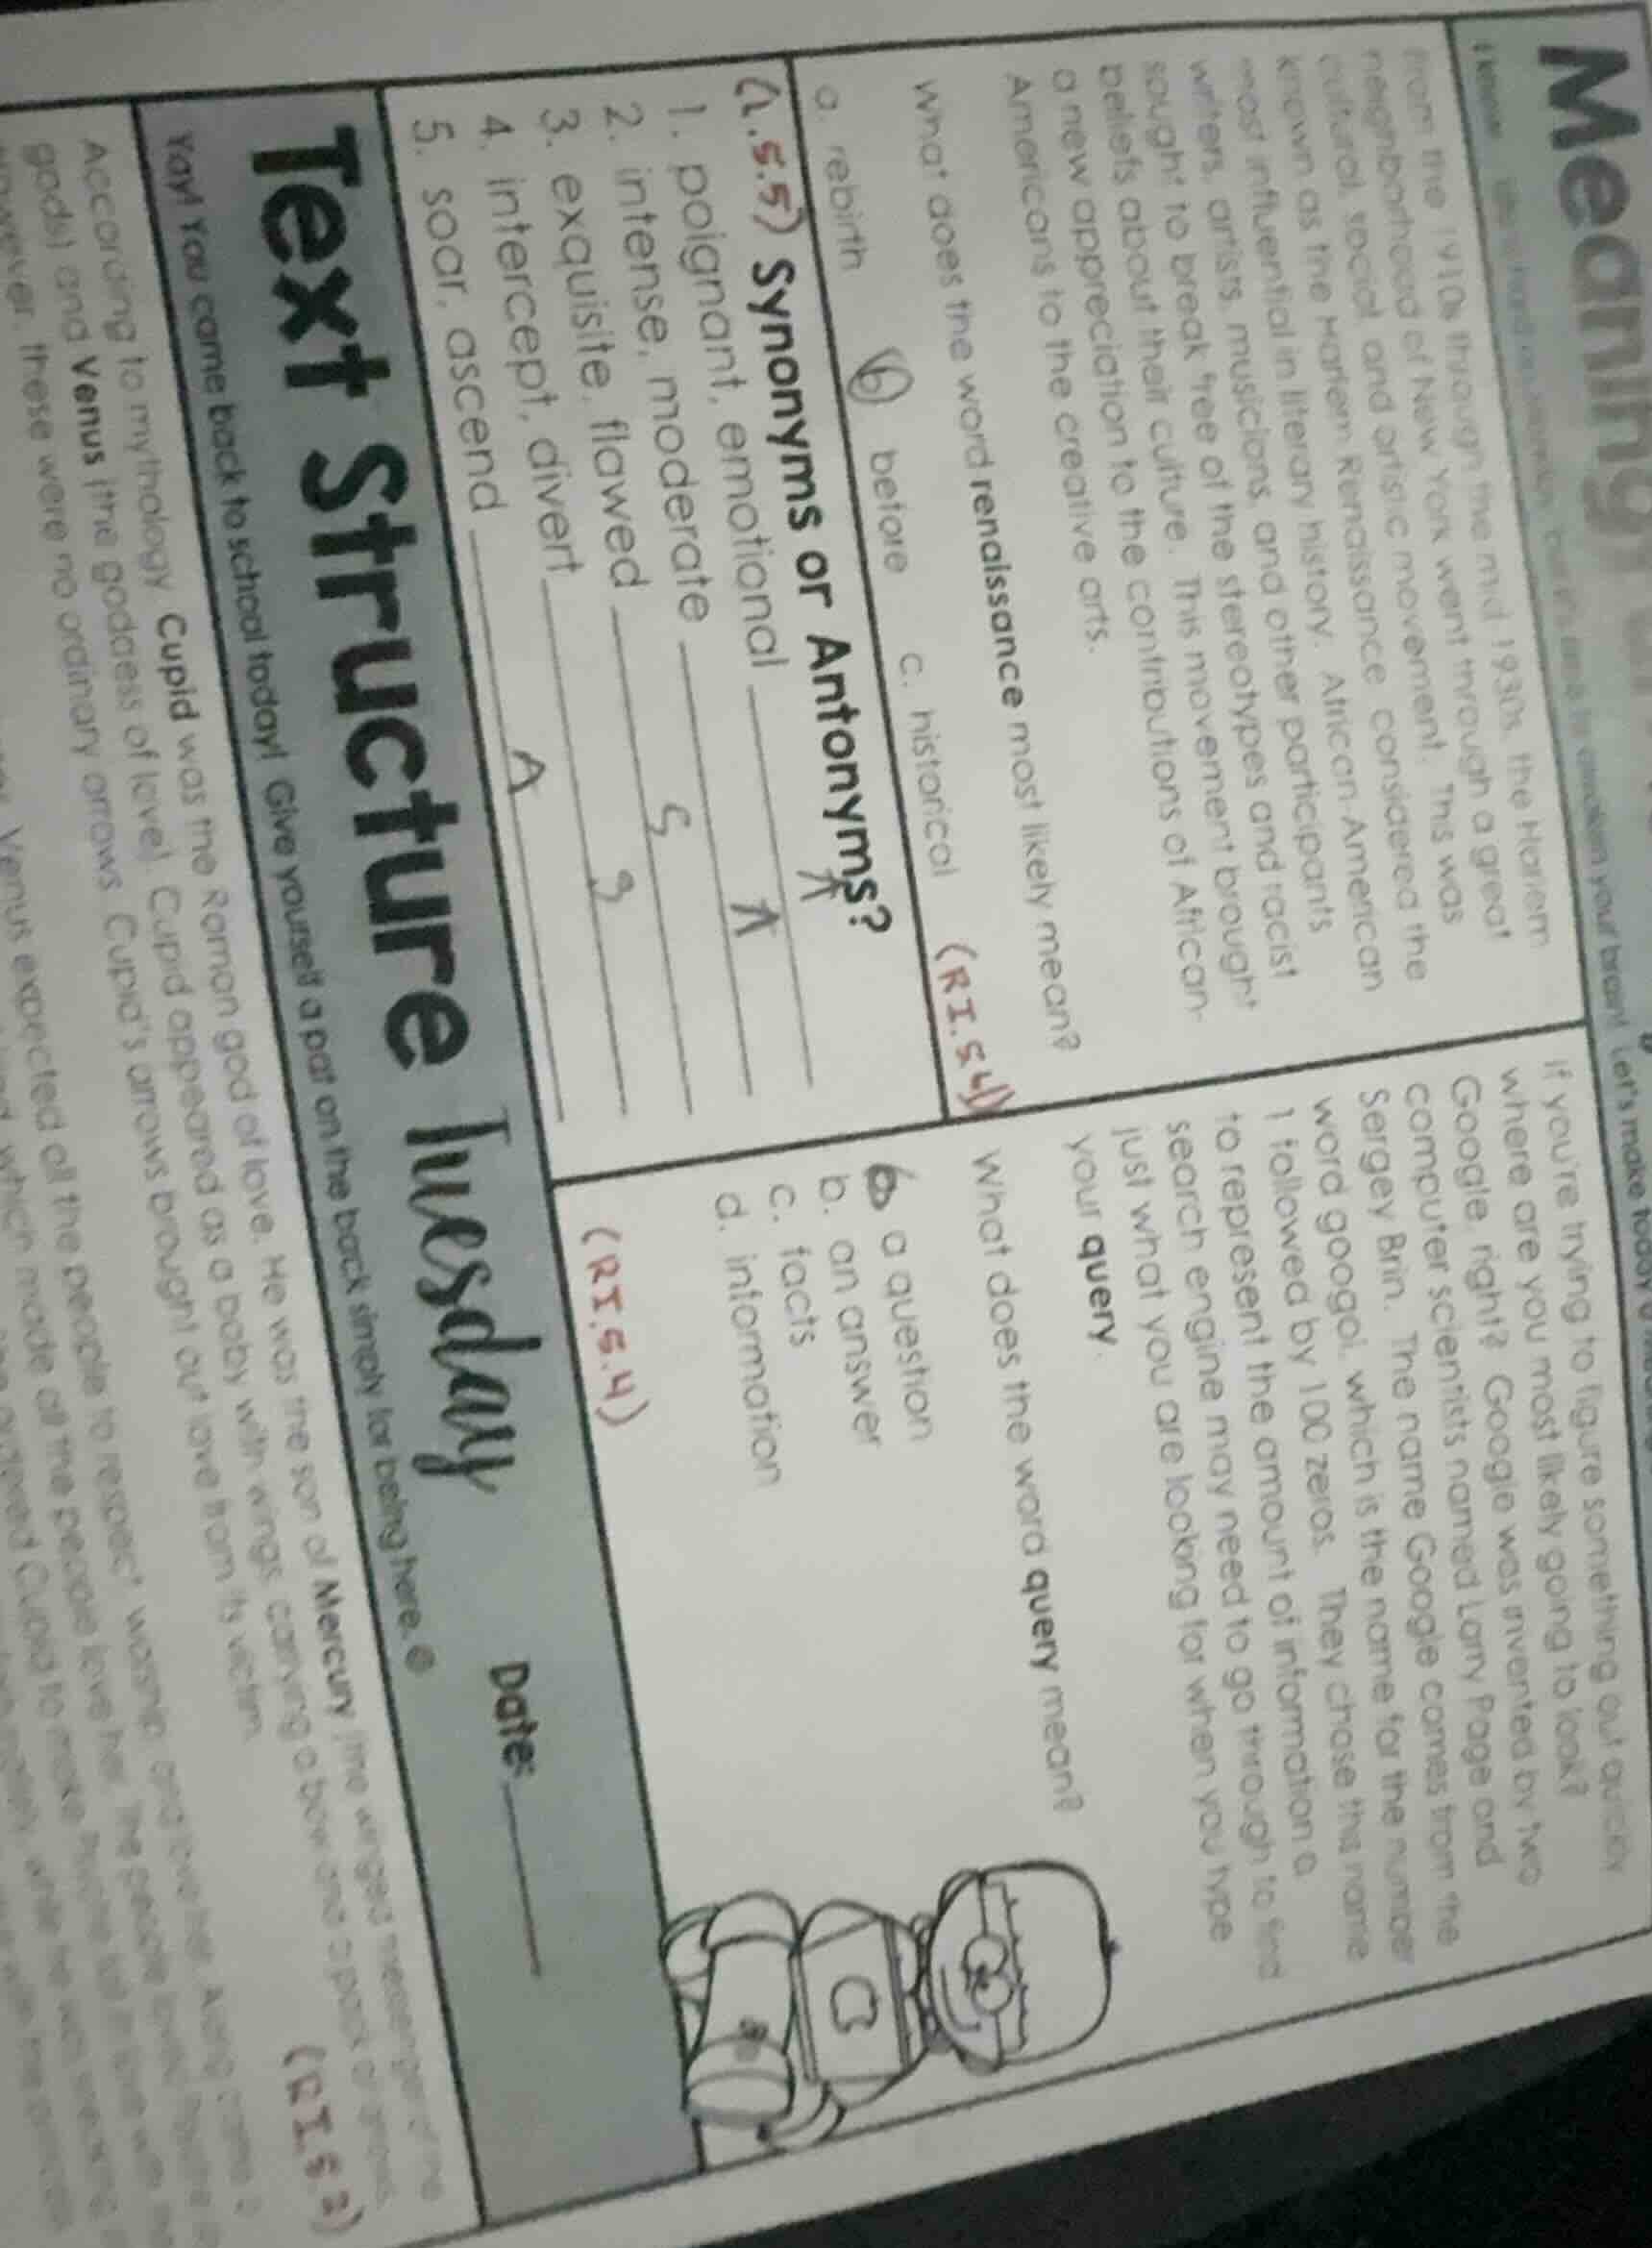 Meaning
from the 1910s through the mid 1930s, the Harlem
neighborhood of New York went through a great
cultural, social, and artistic movement. This was
known as the Harlem Renaissance, considered the
most influential in literary history. African-American
writers, artists, musicians, and other participants
sought to break free of the stereotypes and racist
beliefs about their culture. This movement brought
a new appreciation to the contributions of African-
Americans to the creative arts.
What does the word renaissance most likely mean?
a. rebirth b before c. historical (RI.5.4)
your brain! Let's make today
If you're trying to figure something out quickly
where are you most likely going to look?
Google, right? Google was invented by two
computer scientists named Larry Page and
Sergey Brin. The name Google comes from the
word googol, which is the name for the number
1 followed by 100 zeros. They chose this name
to represent the amount of information a
search engine may need to go through to find
just what you are looking for when you type
your query.
What does the word query mean?
a question
b. an answer
c. facts
d. information
(RI.5.4)
(L.5.5) Synonyms or Antonyms?
1. poignant, emotional A
2. intense, moderate A
3. exquisite, flawed S
4. intercept, divert S
5. soar, ascend A
Text Structure Tuesday Date:
Yay! You came back to school today! Give yourself a pat on the back simply for being here.
(RI.5.3)
According to mythology, Cupid was the Roman god of love. He was the son of Mercury (the winged messenger of the
gods) and Venus (the goddess of love). Cupid appeared as a baby with wings, carrying a bow and a pack of arrows.
However, these were no ordinary arrows. Cupid's arrows brought out love from its victim.
Venus expected all the people to respect, worship, and love her. Along came a
which made all the people love her. The people
ordered Cupid to make